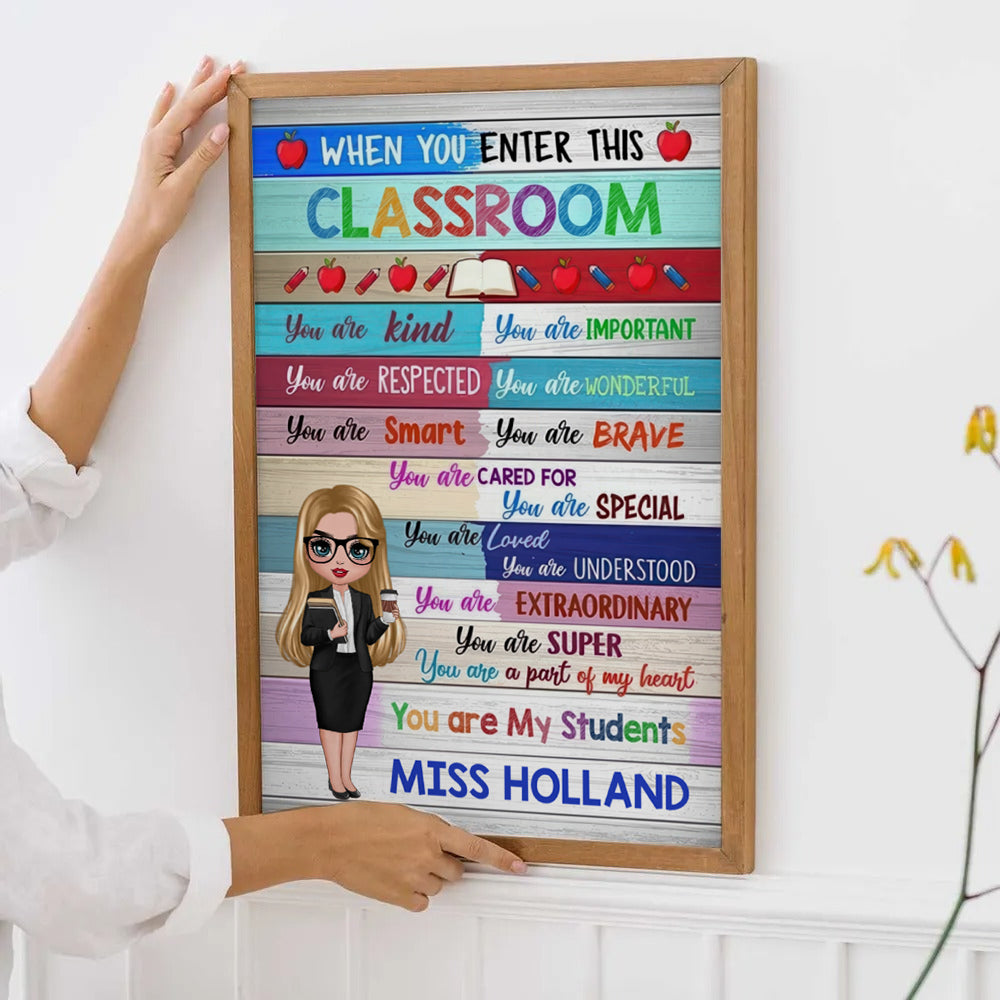 WHEN YOU ENTER THIS
CLASSROOM
You are kind You are IMPORTANT
You are RESPECTED You are WONDERFUL
You are Smart You are BRAVE
You are CARED FOR
You are SPECIAL
You are Loved
You are UNDERSTOOD
You are EXTRAORDINARY
You are SUPER
You are a part of my heart
You are My Students
MISS HOLLAND